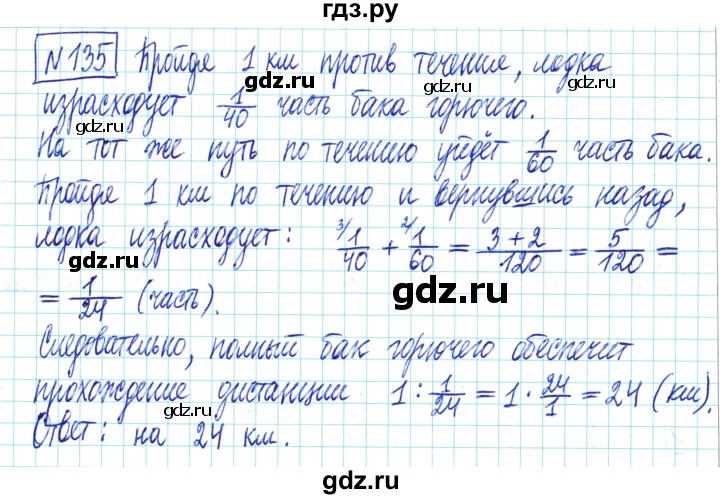 гдз.ру
№135 Пройдя 1 км против течения, лодка
gdz.ru
израсходует 1/40 часть бака горючего.
gdz.ru gdz.ru
На тот же путь по течению уйдёт 1/60 часть бака.
gdz.ru
Пройдя 1 км по течению и вернувшись назад,
gdz.ru
лодка израсходует: 3/ 1/40 + 2/ 1/60 = 3+2/120 = 5/120 =
gdz.ru
= 1/24 (часть). gdz.ru
Следовательно, полный бак горючего обеспечит
gdz.ru
прохождение дистанции 1 : 1/24 = 1 · 24/1 = 24 (км).
gdz.ru gdz.ru
Ответ: на 24 км.
gdz.ru
gdz.ru